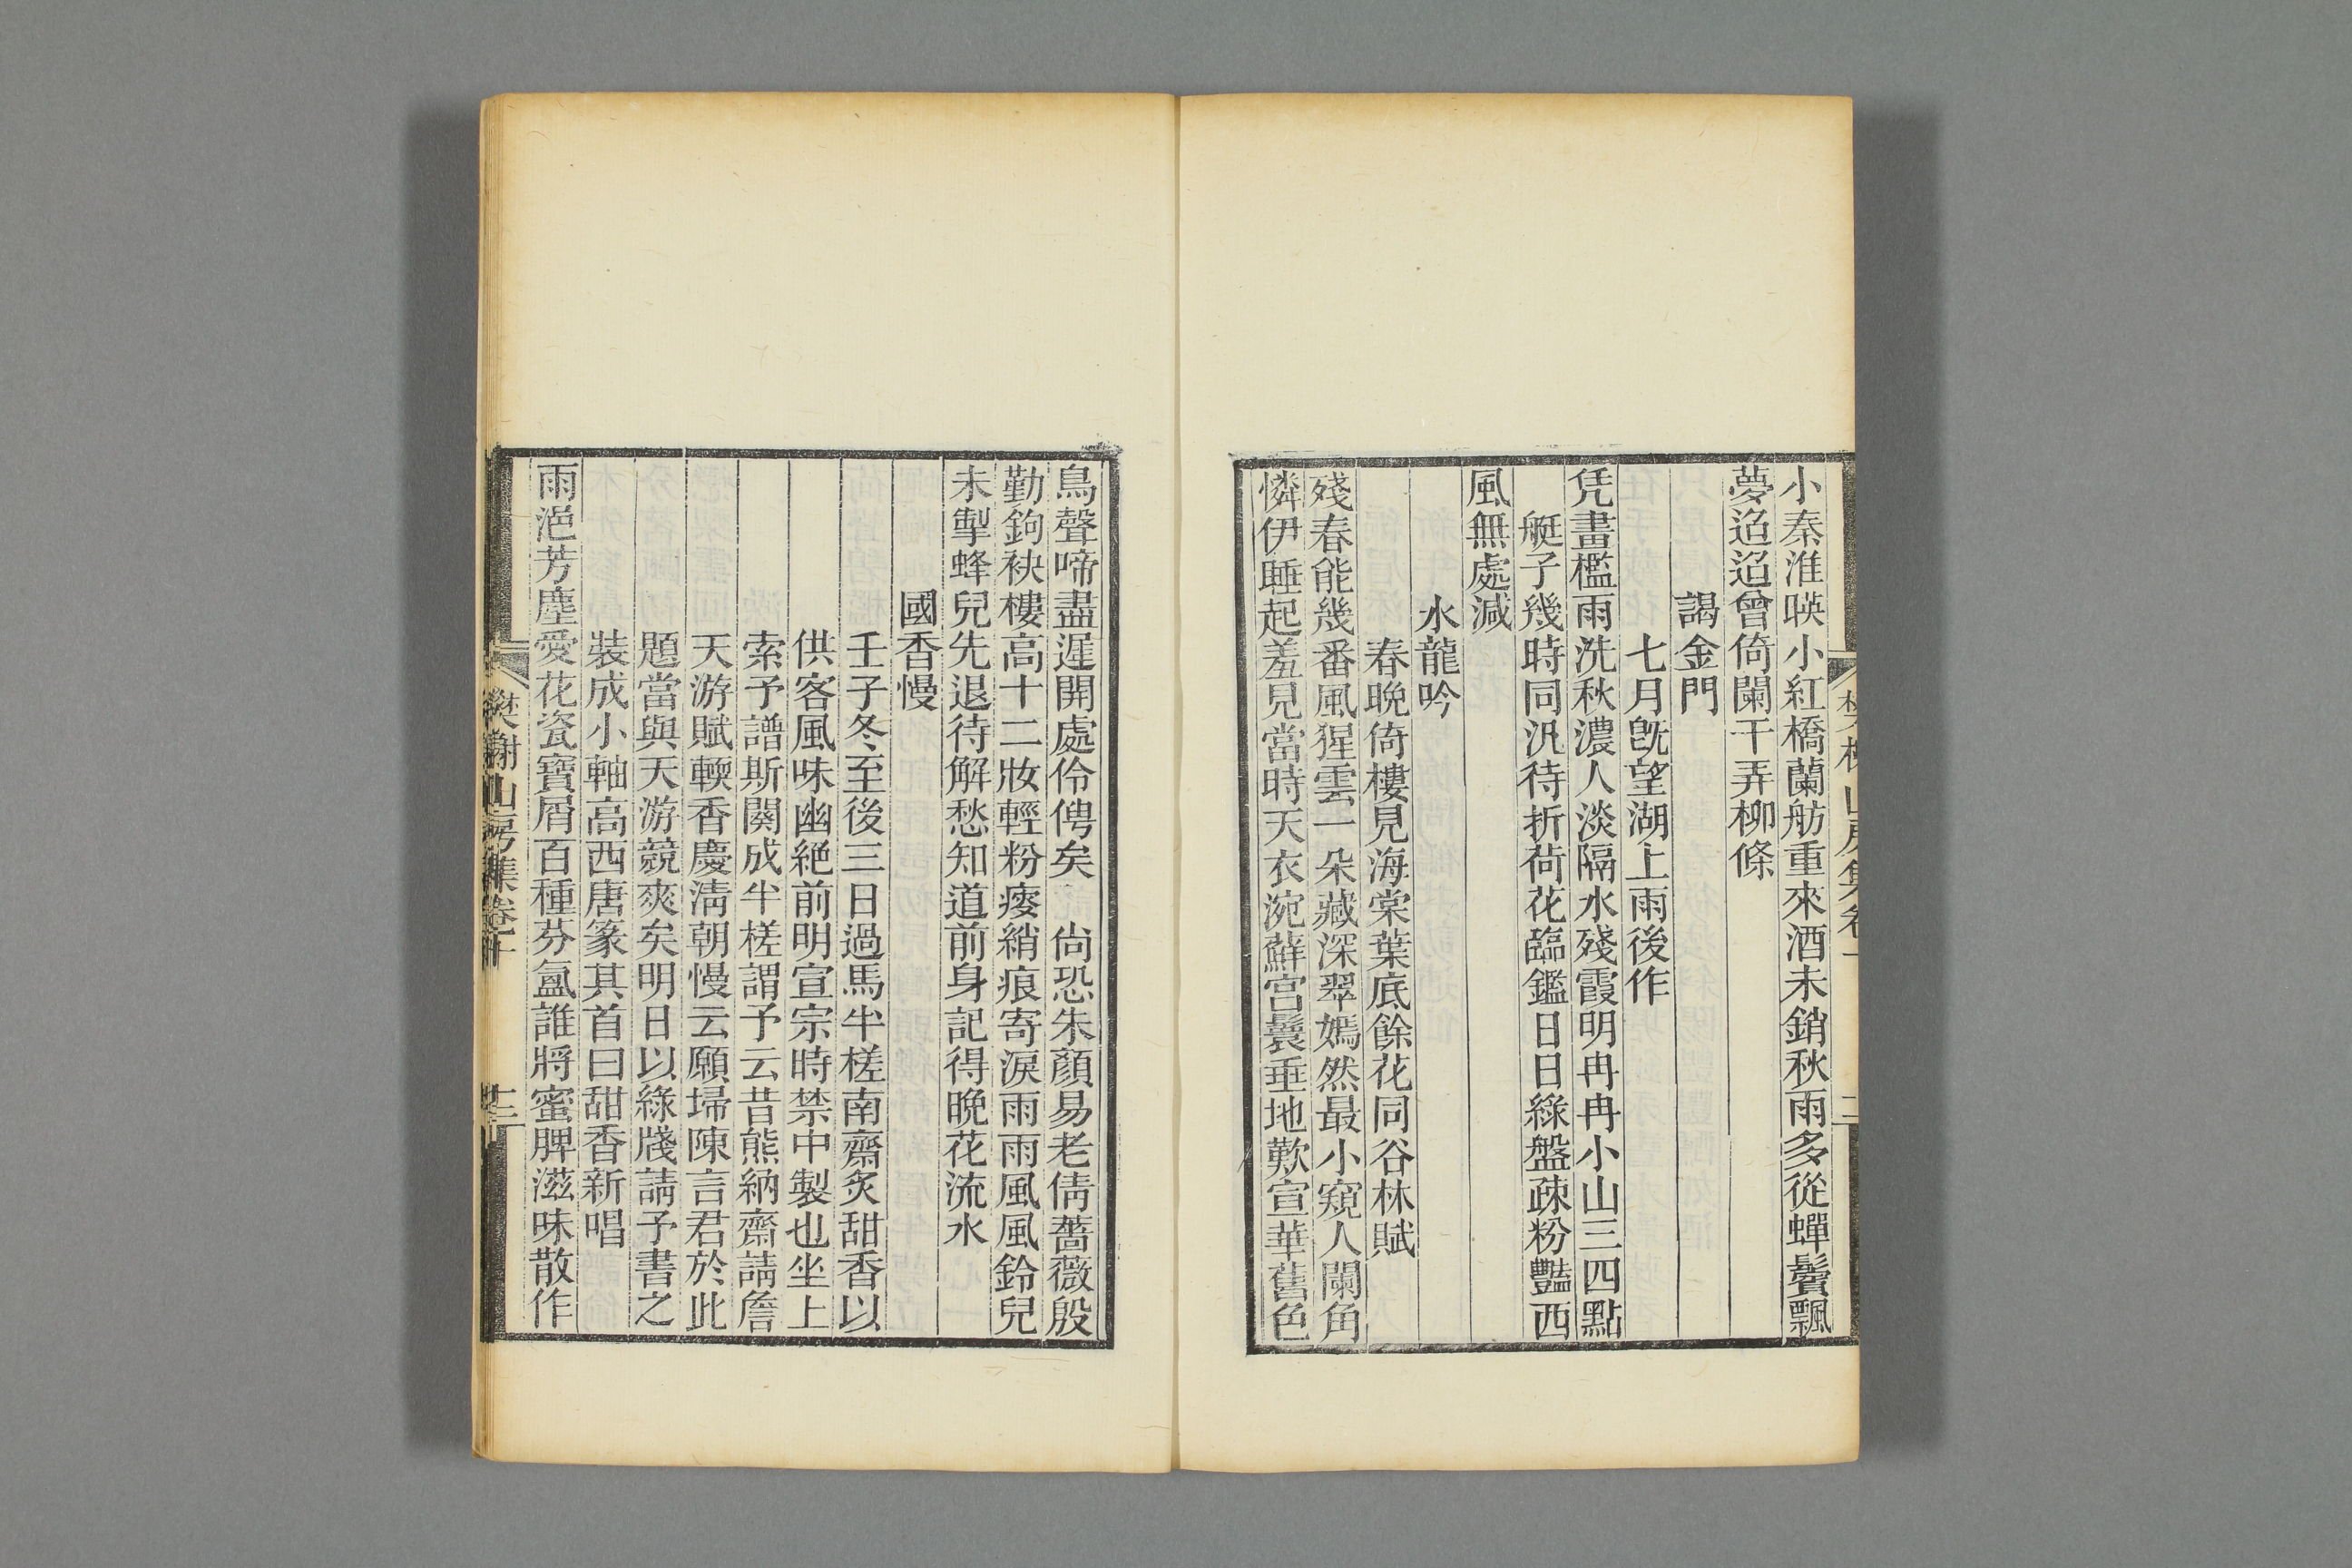 小秦淮暎小紅橋蘭舫重來酒未銷秋雨多從蟬鬢飄
夢迢迢曾倚闌干弄柳條
謁金門
七月旣望湖上雨後作
凭畫檻雨洗秋濃人淡隔水殘霞明冉冉小山三四點
艇子幾時同汎待折荷花臨鑑日日綠盤疎粉豔西
風無處減
水龍吟
春晚倚樓見海棠葉底餘花同谷林賦
殘春能幾番風猩雲一朵藏深翠嫣然最小窺人闌角
憐伊睡起羞見當時天衣涴蘚宮鬟垂地歎宣華舊色
鳥聲啼盡遲開處伶俜矣　尙恐朱顏易老倩薔薇殷
勤鉤袂樓高十二妝輕粉瘦綃痕寄淚雨雨風風鈴兒
未掣蜂兒先退待解愁知道前身記得晚花流水
國香慢
壬子冬至後三日過馬半槎南齋炙甜香以
供客風味幽絕前明宣宗時禁中製也坐上
索予譜斯闋成半槎謂予云昔熊納齋請詹
天游賦輭香慶淸朝慢云願埽陳言君於此
題當與天游競爽矣明日以綠牋請予書之
裝成小軸高西唐篆其首曰甜香新唱
雨浥芳塵愛花瓷寶屑百種芬氳誰將蜜脾滋味散作
樊榭山房集卷十